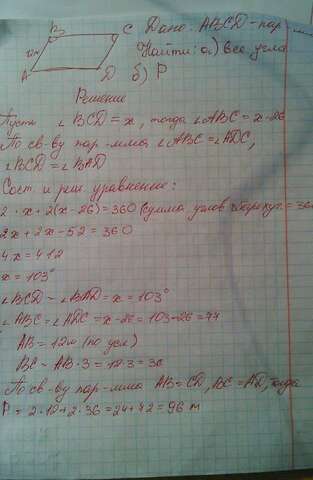 B C Дано: ABCD-пар-мм
12м Найти: а) все углы
A D б) P
Решение
Пусть ∠BCD = x, тогда ∠ABC = x-26
По св-ву пар-мма ∠ABC = ∠ADC,
∠BCD = ∠BAD
Сост. и реш уравнение:
2 · x + 2(x - 26) = 360 (сумма углов = 360
2x + 2x - 52 = 360
4x = 412
x = 103°
∠BCD = ∠BAD = x = 103°
∠ABC = ∠ADC = x - 26 = 103 - 26 = 77
AB = 12м (по усл)
BC = AB · 3 = 12·3 = 36
По св-ву пар-мма AB = CD, BC = AD, тогда
P = 2 · 12 + 2 · 36 = 24 + 72 = 96 м